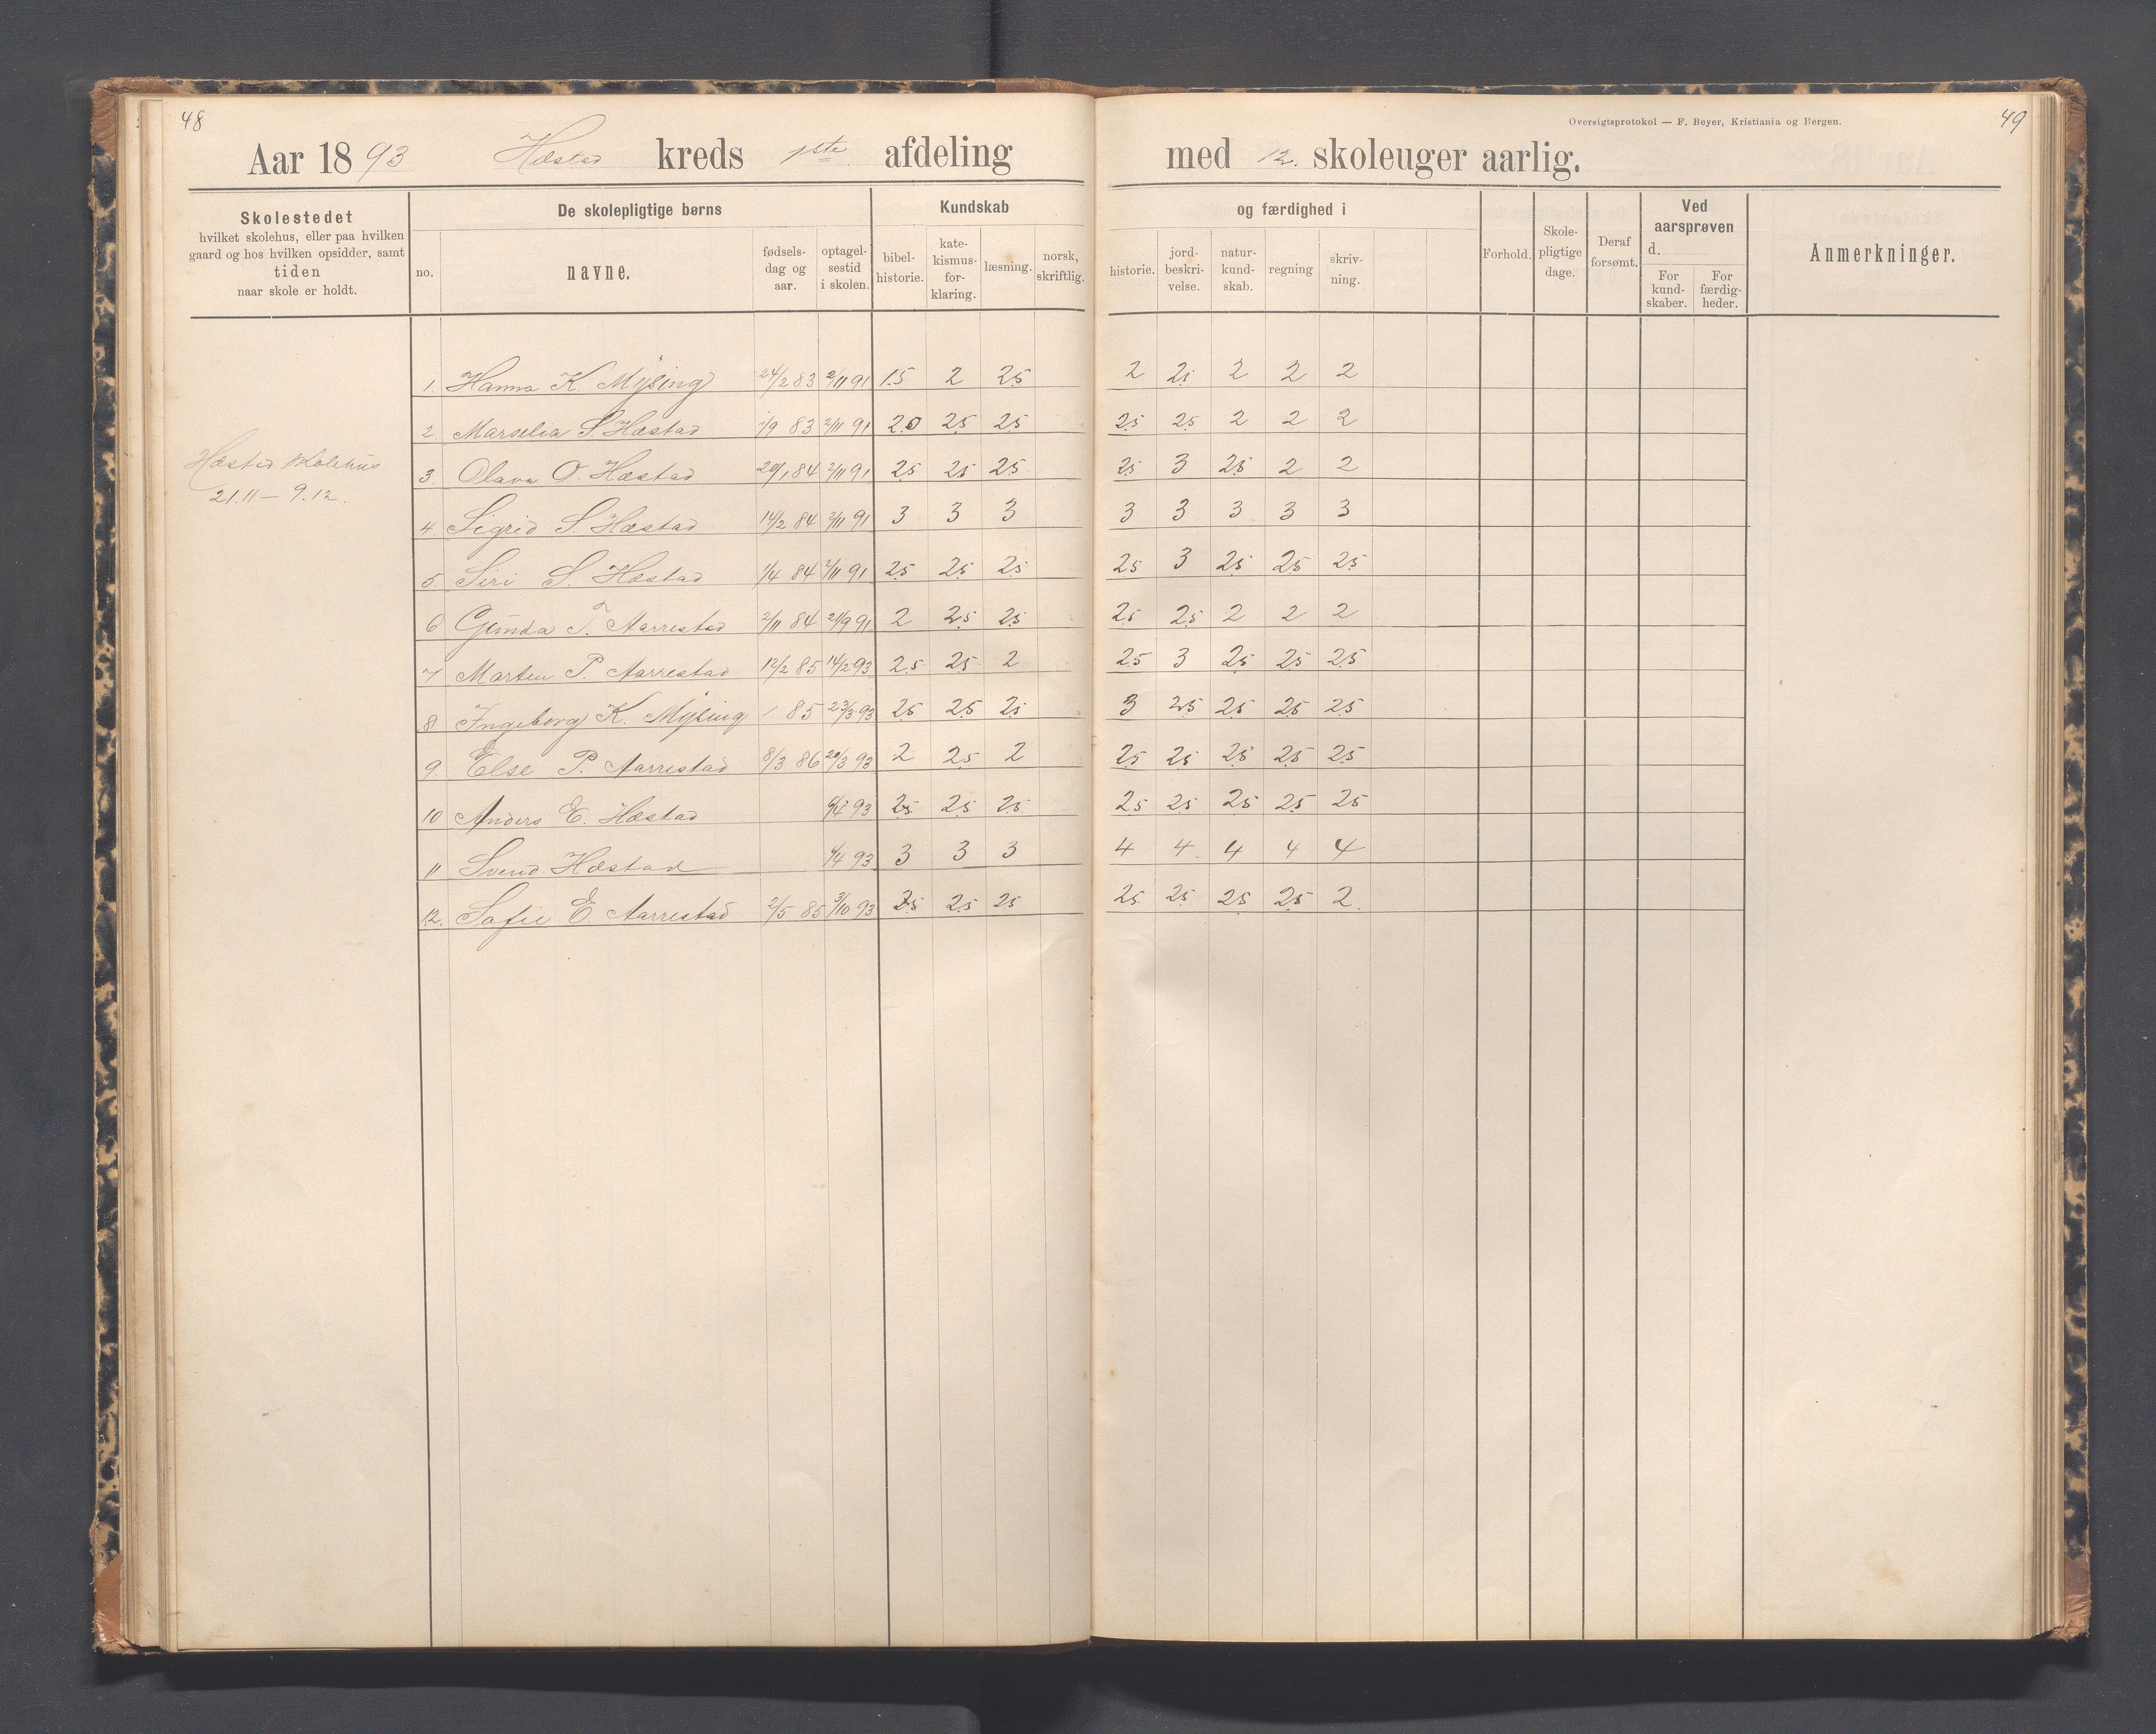 48
Aar 1893 Hæstad kreds 1ste afdeling
Oversigtsprotokol — F. Beyer, Kristiania og Bergen.
49
med 12. skoleuger aarlig.
Skolestedet
hvilket skolehus, eller paa hvilken
gaard og hos hvilken opsidder, samt
tiden
naar skole er holdt.
De skolepligtige børns
no.
navne.
fødsels-
dag og
aar.
optagel-
sestid
i skolen.
Kundskab
bibel-
historie.
kate-
kismus-
for-
klaring.
læsning.
norsk,
skriftlig.
og færdighed i
historie.
jord-
beskri-
velse.
natur-
kund-
skab.
regning
skriv-
ning.
Forhold.
Skole-
pligtige
dage.
Deraf
forsømt.
Ved
aarsprøven
d.
For
kund-
skaber.
For
færdig-
heder.
Anmerkninger.
Hæstad skolehus
21.11 — 9.12.
1. Hanna K Mysing 24/2 83 2/11 91 1.5 2 2.5 2 2.5 2 2 2
2. Marselia S Hæstad 1/9 83 2/11 91 2.0 2.5 2.5 2.5 2.5 2 2 2
3. Olava O. Hæstad 20/1 84 2/11 91 2.5 2.5 2.5 2.5 3 2.5 2 2
4. Sigrid S Hæstad 14/2 84 2/11 91 3 3 3 3 3 3 3 3
5. Siri S. Hæstad 1/4 84 2/11 91 2.5 2.5 2.5 2.5 3 2.5 2.5 2.5
6 Gunda T. Aarrestad 2/11 84 21/9 91 2 2.5 2.5 2.5 2.5 2 2 2
7 Marten P. Aarrestad 12/2 85 14/2 93 2.5 2.5 2 2.5 3 2.5 2.5 2.5
8 Ingeborg K. Mysing / 85 23/3 93 2.5 2.5 2.5 3 2.5 2.5 2.5 2.5
9. Else P. Aarrestad 8/3 86 20/3 93 2 2.5 2 2.5 2.5 2.5 2.5 2.5
10 Anders E. Hæstad 4/4 93 2.5 2.5 2.5 2.5 2.5 2.5 2.5 2.5
11 Svend Hæstad 4/4 93 3 3 3 4 4 4 4 4
12. Sofie E. Aarrestad 2/5 85 3/10 93 2.5 2.5 2.5 2.5 2.5 2.5 2.5 2.